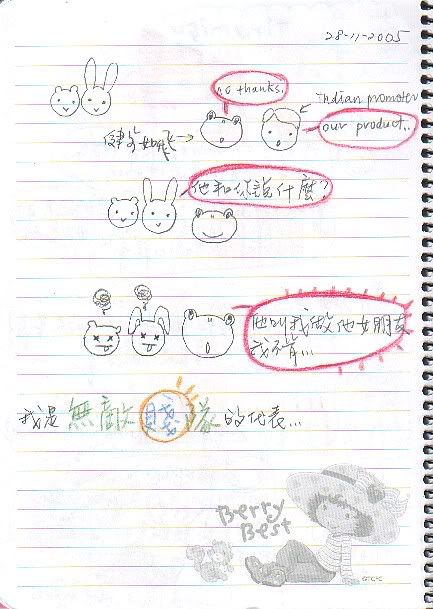 28-11-2005
no thanks.
Indian promoter
健步如飛→
our product..
他和你說什麼?
他叫我做他女朋友
我不肯...
我是無敵賤隊的代表...
Berry
Best